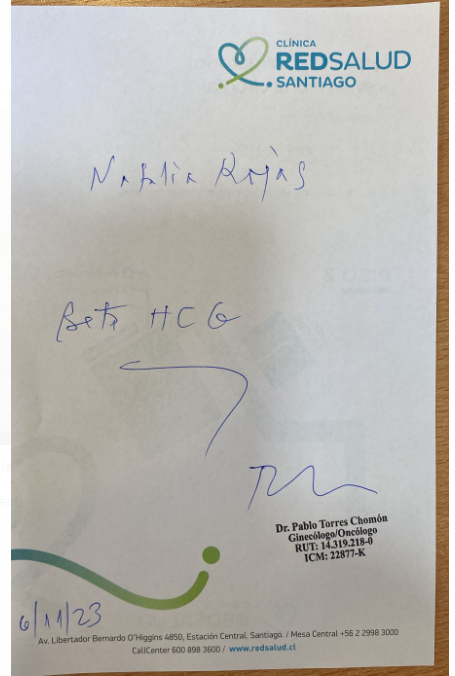 CLÍNICA
REDSALUD
SANTIAGO
Natalia Rojas
Beta HCG
Dr. Pablo Torres Chomón
Ginecólogo/Oncólogo
RUT: 14.319.218-0
ICM: 22877-K
6/11/23
Av. Libertador Bernardo O'Higgins 4850, Estación Central, Santiago. / Mesa Central +56 2 2998 3000
CallCenter 600 898 3600 / www.redsalud.cl